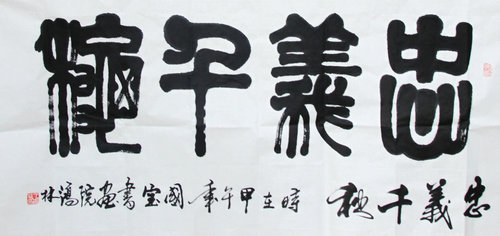 忠義千秋
忠義千秋 時在甲午年 國宝書画院鴻林